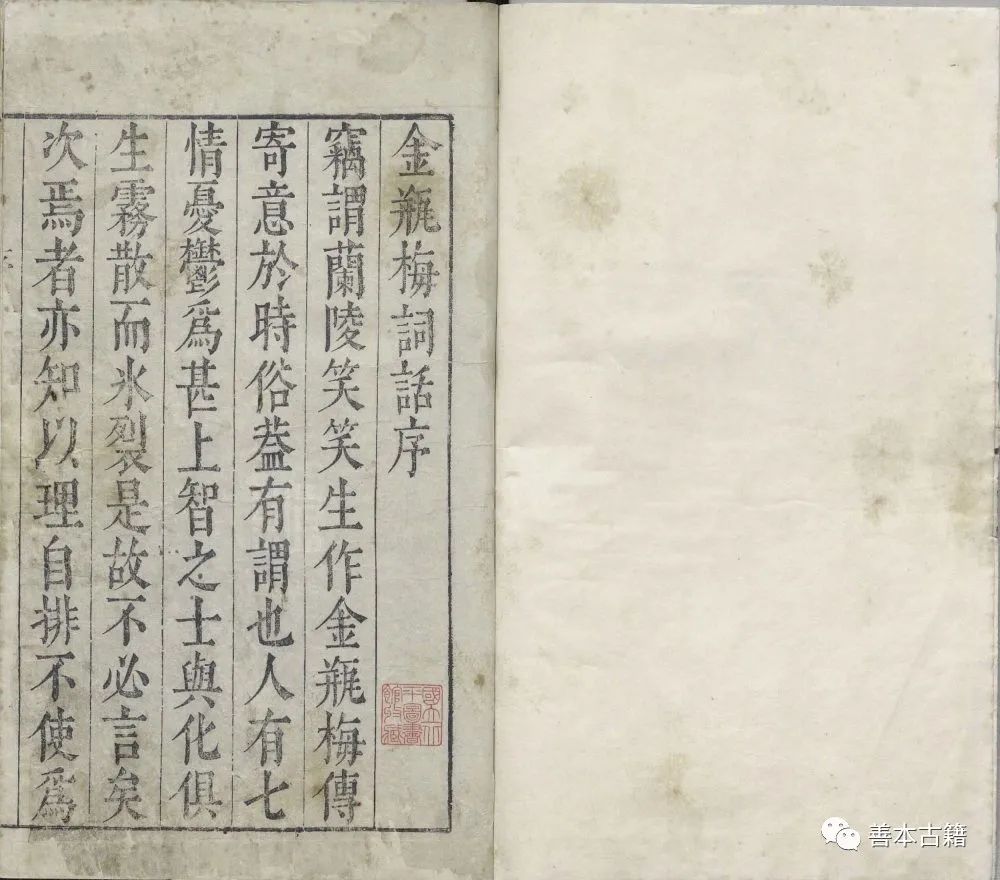 金瓶梅詞話序
竊謂蘭陵笑笑生作金瓶梅傳
寄意於時俗葢有謂也人有七
情憂鬱爲甚上智之士與化俱
生霧散而氷裂是故不必言矣
次焉者亦知以理自排不使爲
國立北
平圖書
館收藏
善本古籍